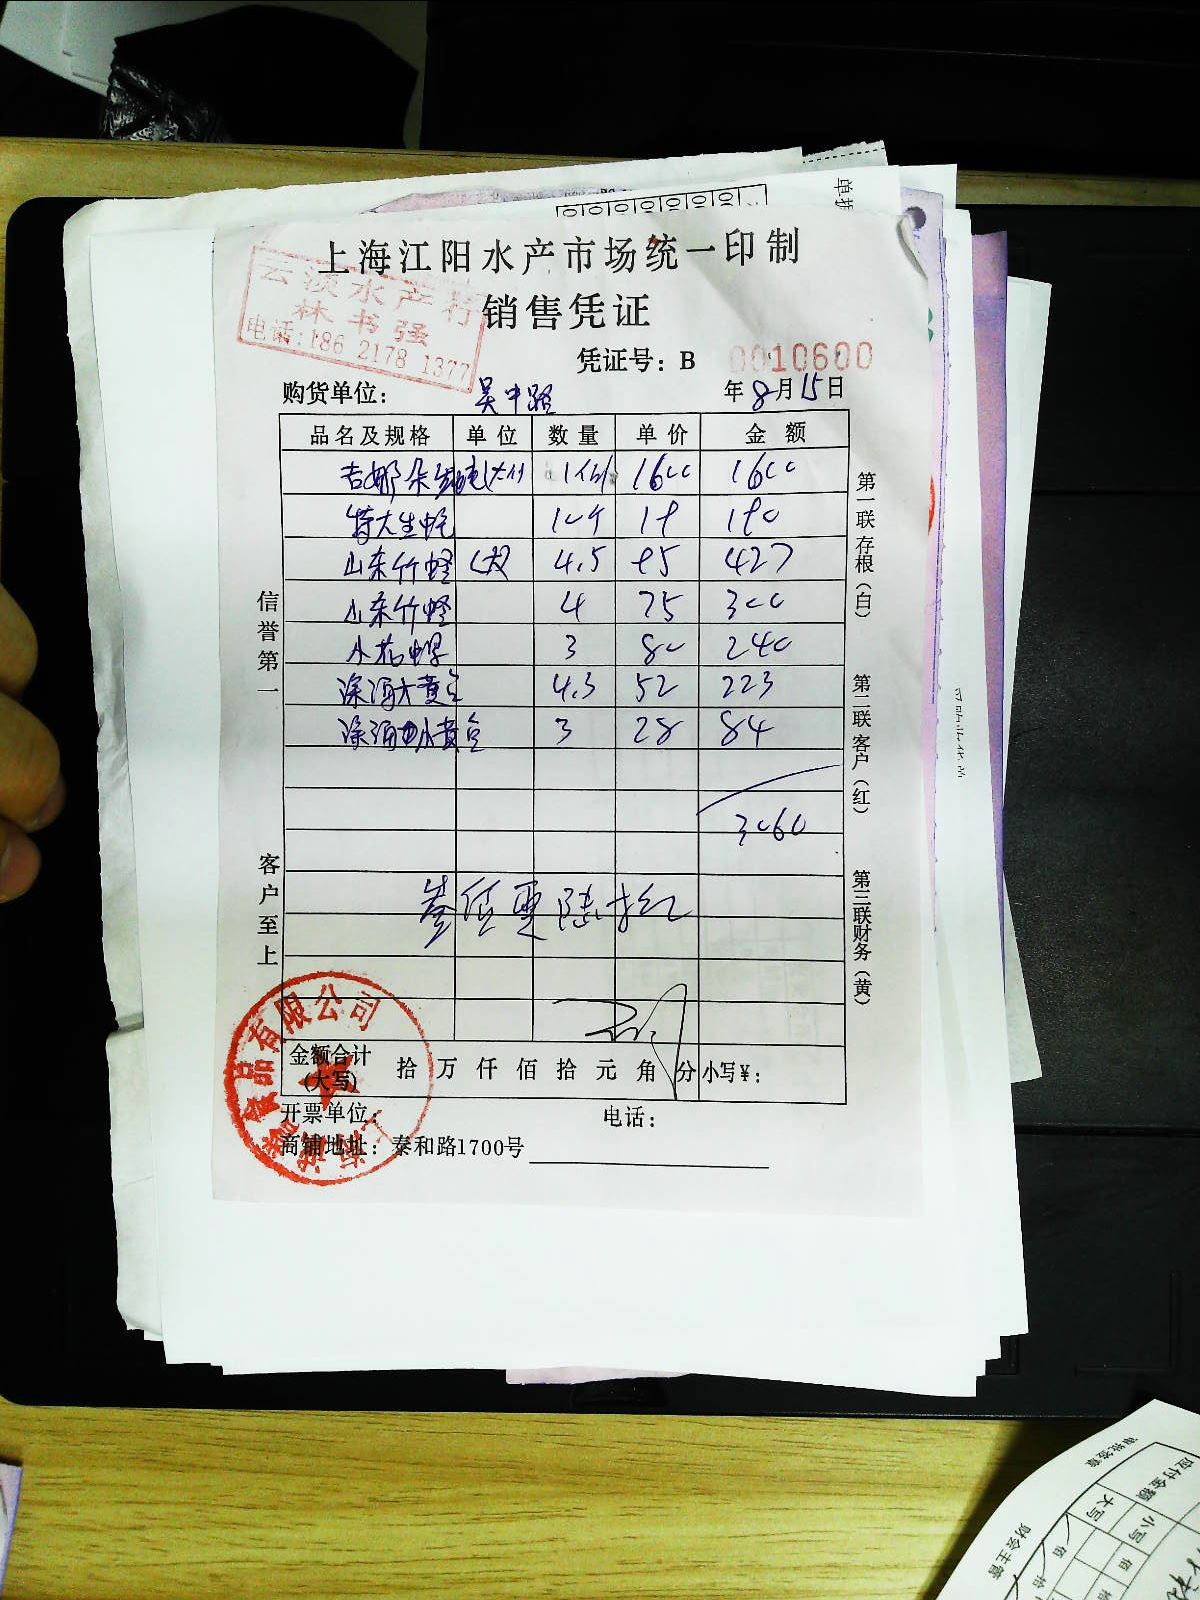 上海江阳水产市场统一印制
销售凭证
云淡水产行
林书强
电话:186 2178 1377
凭证号：B 0010600
购货单位： 吴中路 年8月15日
品名及规格 单位 数量 单价 金额
吉娜朵 1600 1600
特大生蚝
山东竹蛏 (大) 4.5 95 427
山东竹蛏 4 75 300
小花螺 3 80 240
深海大黄鱼 4.3 52 223
深海小黄鱼 3 28 84
3060
金额合计(大写) 拾 万 仟 佰 拾 元 角 分 小写¥：
开票单位： 电话：
商铺地址：泰和路1700号
信誉第一
客户至上
第一联 存根（白）
第二联 客户（红）
第三联 财务（黄）
食品有限公司
应付金额
大写
小写
佰
拾
财会主管